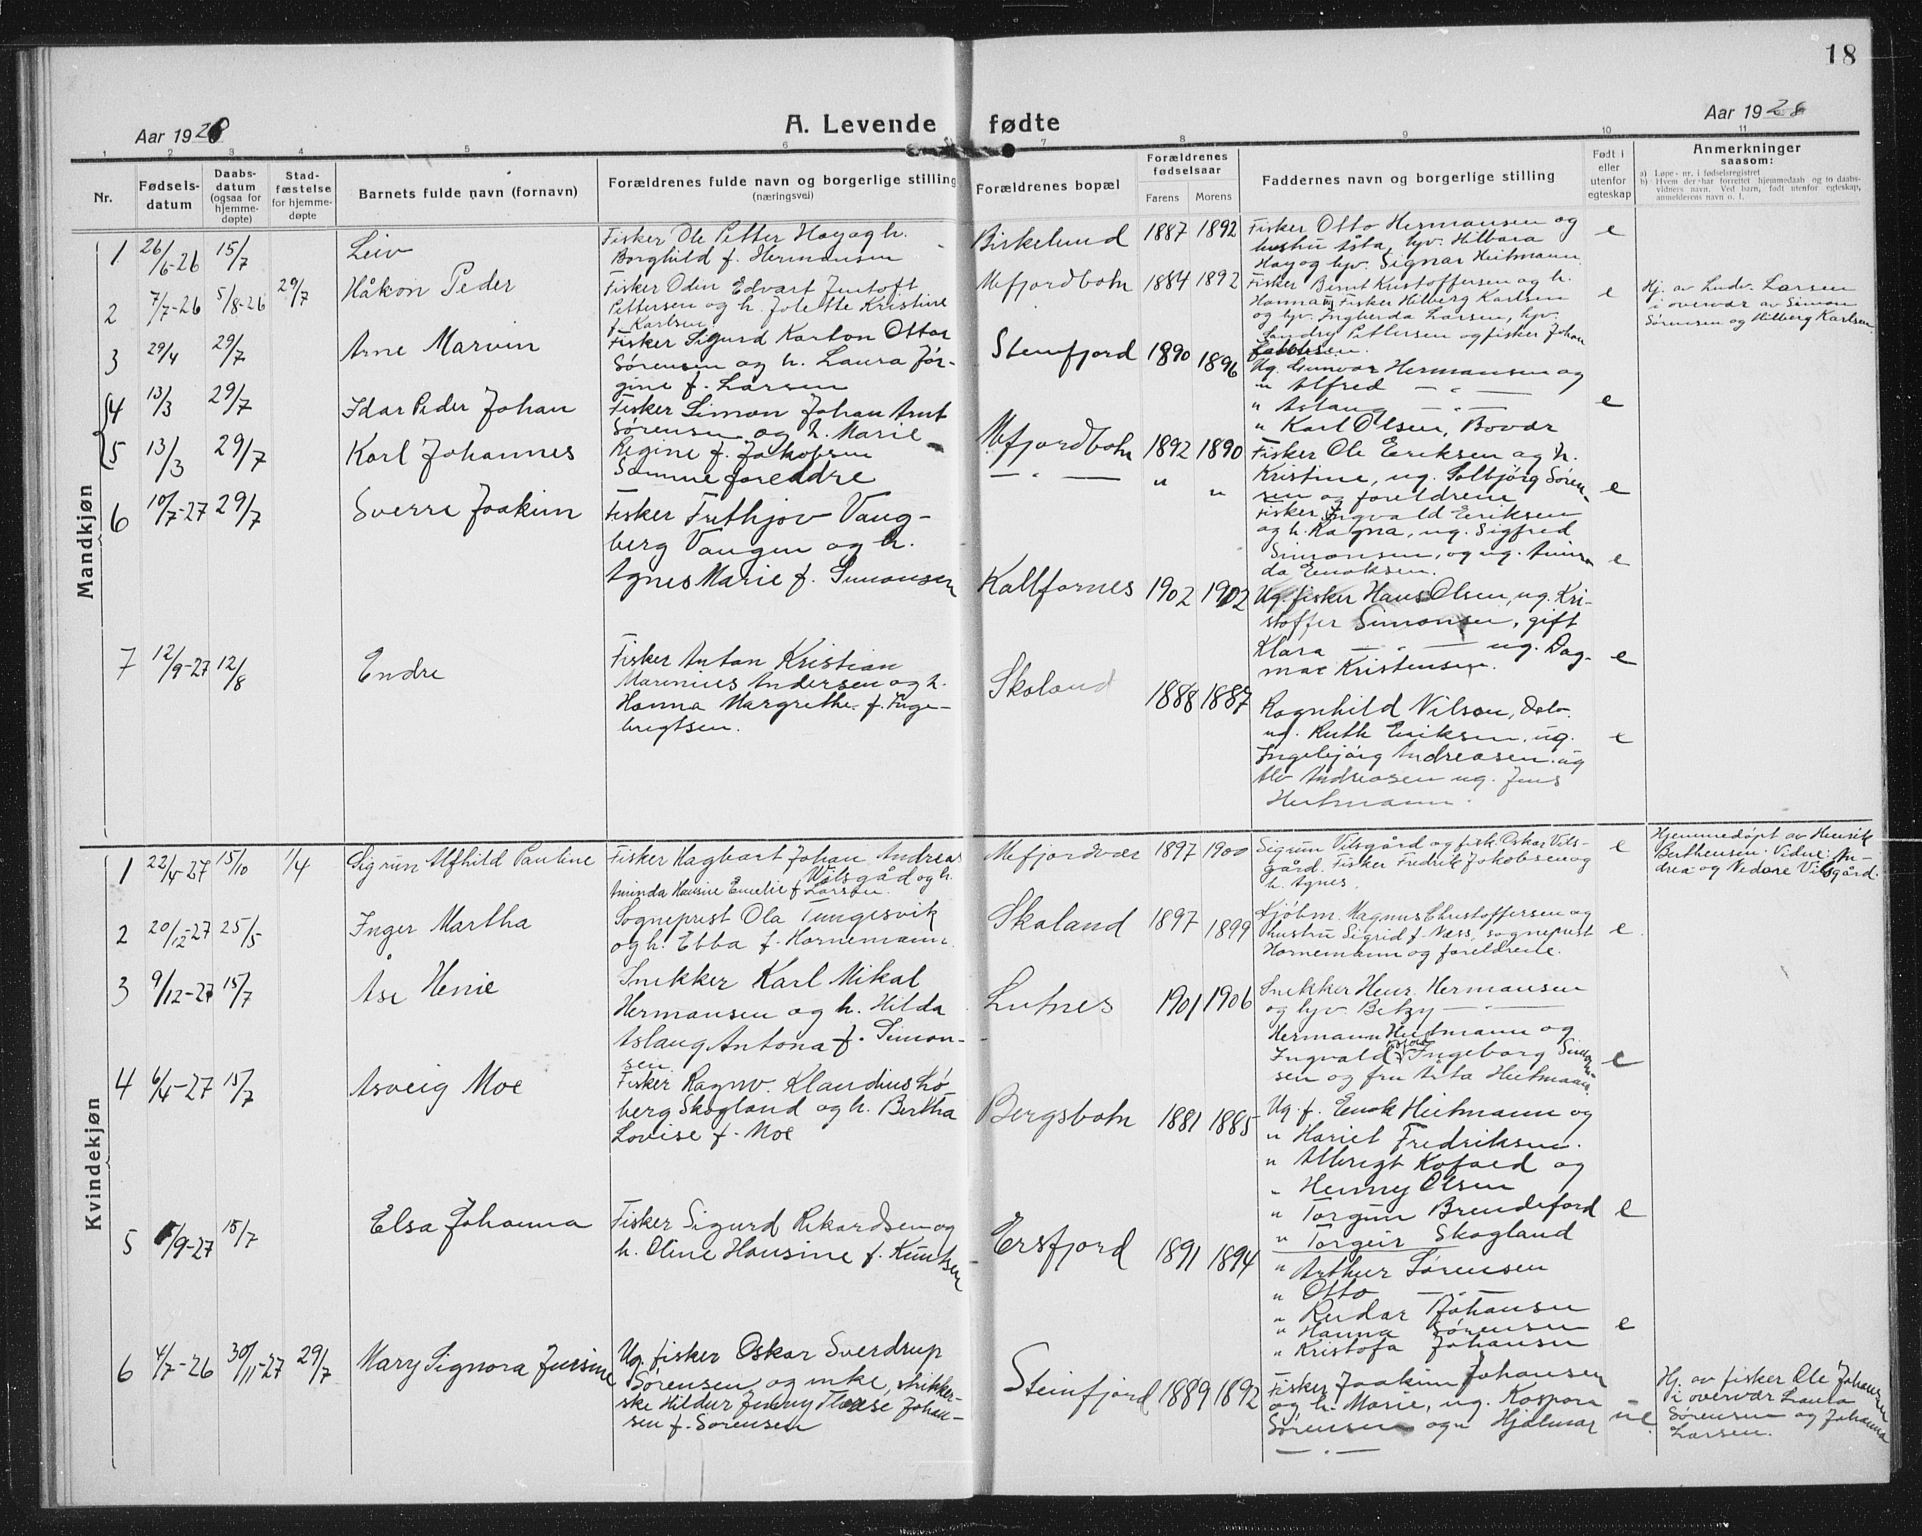 18
Aar 1928
A. Levende fødte
Aar 1928
1 2 3 4 5 6 7 8 9 10 11
Nr.
Fødsels-
datum
Daabs-
datum
(ogsaa for
hjemme-
døpte)
Stad-
fæstelse
for hjemme-
døpte
Barnets fulde navn (fornavn)
Forældrenes fulde navn og borgerlige stilling
(næringsvei)
Forældrenes bopæl
Forældrenes
fødselsaar
Farens Morens
Faddernes navn og borgerlige stilling
Født i
eller
utenfor
egteskap
Anmerkninger
saasom:
a) Løpe-nr. i fødselsregistret
b) Hvem der har forrettet hjemmedaab og to daabs-
vidners navn. Ved barn, født utenfor egteskap,
anmelderens navn o. l.
Mandkjøn
1 26/6-26 15/7 Leiv
Fisker Ole Petter Høyog h.
Borghild f. Hermansen
Birkelund 1887 1892
Fisker Otto Hermansen og
hustru Åsta, hjv. Hilbara
Høyog hjv. Signar Heitmann
e
2 7/7-26 5/8-26 29/7 Håkon Peder
Fisker Odin Edvart Jentoft
Pettersen og h. Jolette Kristine
f. Karlsen
Mefjordbotn 1884 1892
Fisker Bernt Kristoffersen og h.
Hanna og Fisker Hilberg Karlsen
og hjv. Ingberda Larsen, hjv.
Sandry Pettersen og fisker Johan
e
Hj. av Ludv. Larsen
i overvær av Simon
Sørensen og Hilberg Karlsen
3 29/4 29/7 Arne Marvin
Fisker Sigurd Karton Ottar
Sørensen og h. Laura Jør-
gine f. Larsen
Steinfjord 1890 1896
Ug. Gunvor Hermansen og
" Alfred — " —
" Aslaug — " —
" Karl Olsen, Bovær
e
4 13/3 29/7 Idar Peder Johan
Fisker Simon Johan Arnt
Sørensen og h. Marie
Regine f. Jakobsen
Mefjordbotn 1892 1890
Fisker Ole Eriksen og h.
Kristine, ug. Solbjørg Søren-
sen og foreldrene
e
5 13/3 29/7 Karl Johannes
Samme foreldre
— " — " "
Fisker Ingvald Eriksen
og h. Ragna, ug. Sigfred
Simonsen, og ug. Amin-
da Enoksen.
e
6 10/7-27 29/7 Sverre Joakim
Fisker Frithjov Vang-
berg Vangen og h.
Agnes Marie f. Simonsen
Kaldfarnes 1902 1902
Ug. fisker Hans Olsen, ug. Kri-
stoffer Simonsen, gift
Klara — " — ug. Dag-
mar Kristensen.
e
7 12/9-27 12/8 Endre
Fisker Anton Kristian
Marenius Andersen og h.
Hanna Margrethe f. Inge-
brigtsen.
Skaland 1888 1887
Ragnhild Nilsen, Oslo.
ug. Ruth Eriksen, ug.
Ingebjørg Andreasen. ug
Alv Andreasen ug. Jens
Heitmann.
e
Kvindekjøn
1 22/4-27 15/10 1/4 Sigrun Alfhild Pauline
Fisker Hagbart Johan Andreas
Vilsgård og h.
Aminda Hansine Emelie f Larsen.
Mefjordvær 1897 1900
Sigrun Vilsgård og fisk. Oskar Vils-
gård. Fisker Fredrik Jakobsen og
h. Agnes.
e
Hjemmedøpt av Henrik
Berthensen. Vidne: An-
drea og Nedare Vilsgård.
2 20/12-27 25/5 Inger Martha
Sogneprest Ola Tungesvik
og h. Ebba f. Hornemann.
Skaland 1897 1899
Kjøbm. Magnus Christoffersen og
hustru Sigrid f. Næss, sogneprest
Hornemann og foreldrene.
e.
3 9/12-27 15/7 Åse Henie
Snekker Karl Mikal
Hermansen og h. Hilda
Aslaug Antona f. Simon-
sen
Lutnes 1901 1906
Snekker Henr. Hermansen
og hjv Betzy — " —
Hermann Heitmann og
Ingvald Ingeborg Simon-
sen og fru Asta Heitmann
e
4 6/4-27 15/7 Asveig Moe
Fisker Ragnv. Klaudius Lø-
berg Skogland og h. Bertha
Lovise f. Moe
Bergsbotn 1881 1885
Ug. f. Enok Heitmann og
" Hariet Fredriksen.
" Albrigt Kofoed og
" Henny Olsen
" Torgun Brendefjord
" Torgeir Skogland
e
5 5/9-27 15/7 Elsa Johanna
Fisker Sigurd Rikardsen og
h. Oline Hansine f. Knutsen
Ersfjord 1891 1894
" Arthur Sørensen
" Otto — " —
" Reidar Johansen
" Hanna Sørensen
" Kristofa Johansen
e
6 4/7-26 30/11-27 29/7 Mary Signora Jensine
Ug. fisker Oskar Sverdrup
Sørensen og enke, strikker-
ske Hildur Jenny Therese Johan-
sen f. Sørensen
Steinfjord 1889 1892
Fisker Joakim Johansen
og h. Marie, ug. Kaspara
Sørensen og " Hjalmar
— " —
ue.
Hj. av fisker Ole Johansen
i overvær Laura
Sørensen og Johanna
Larsen.